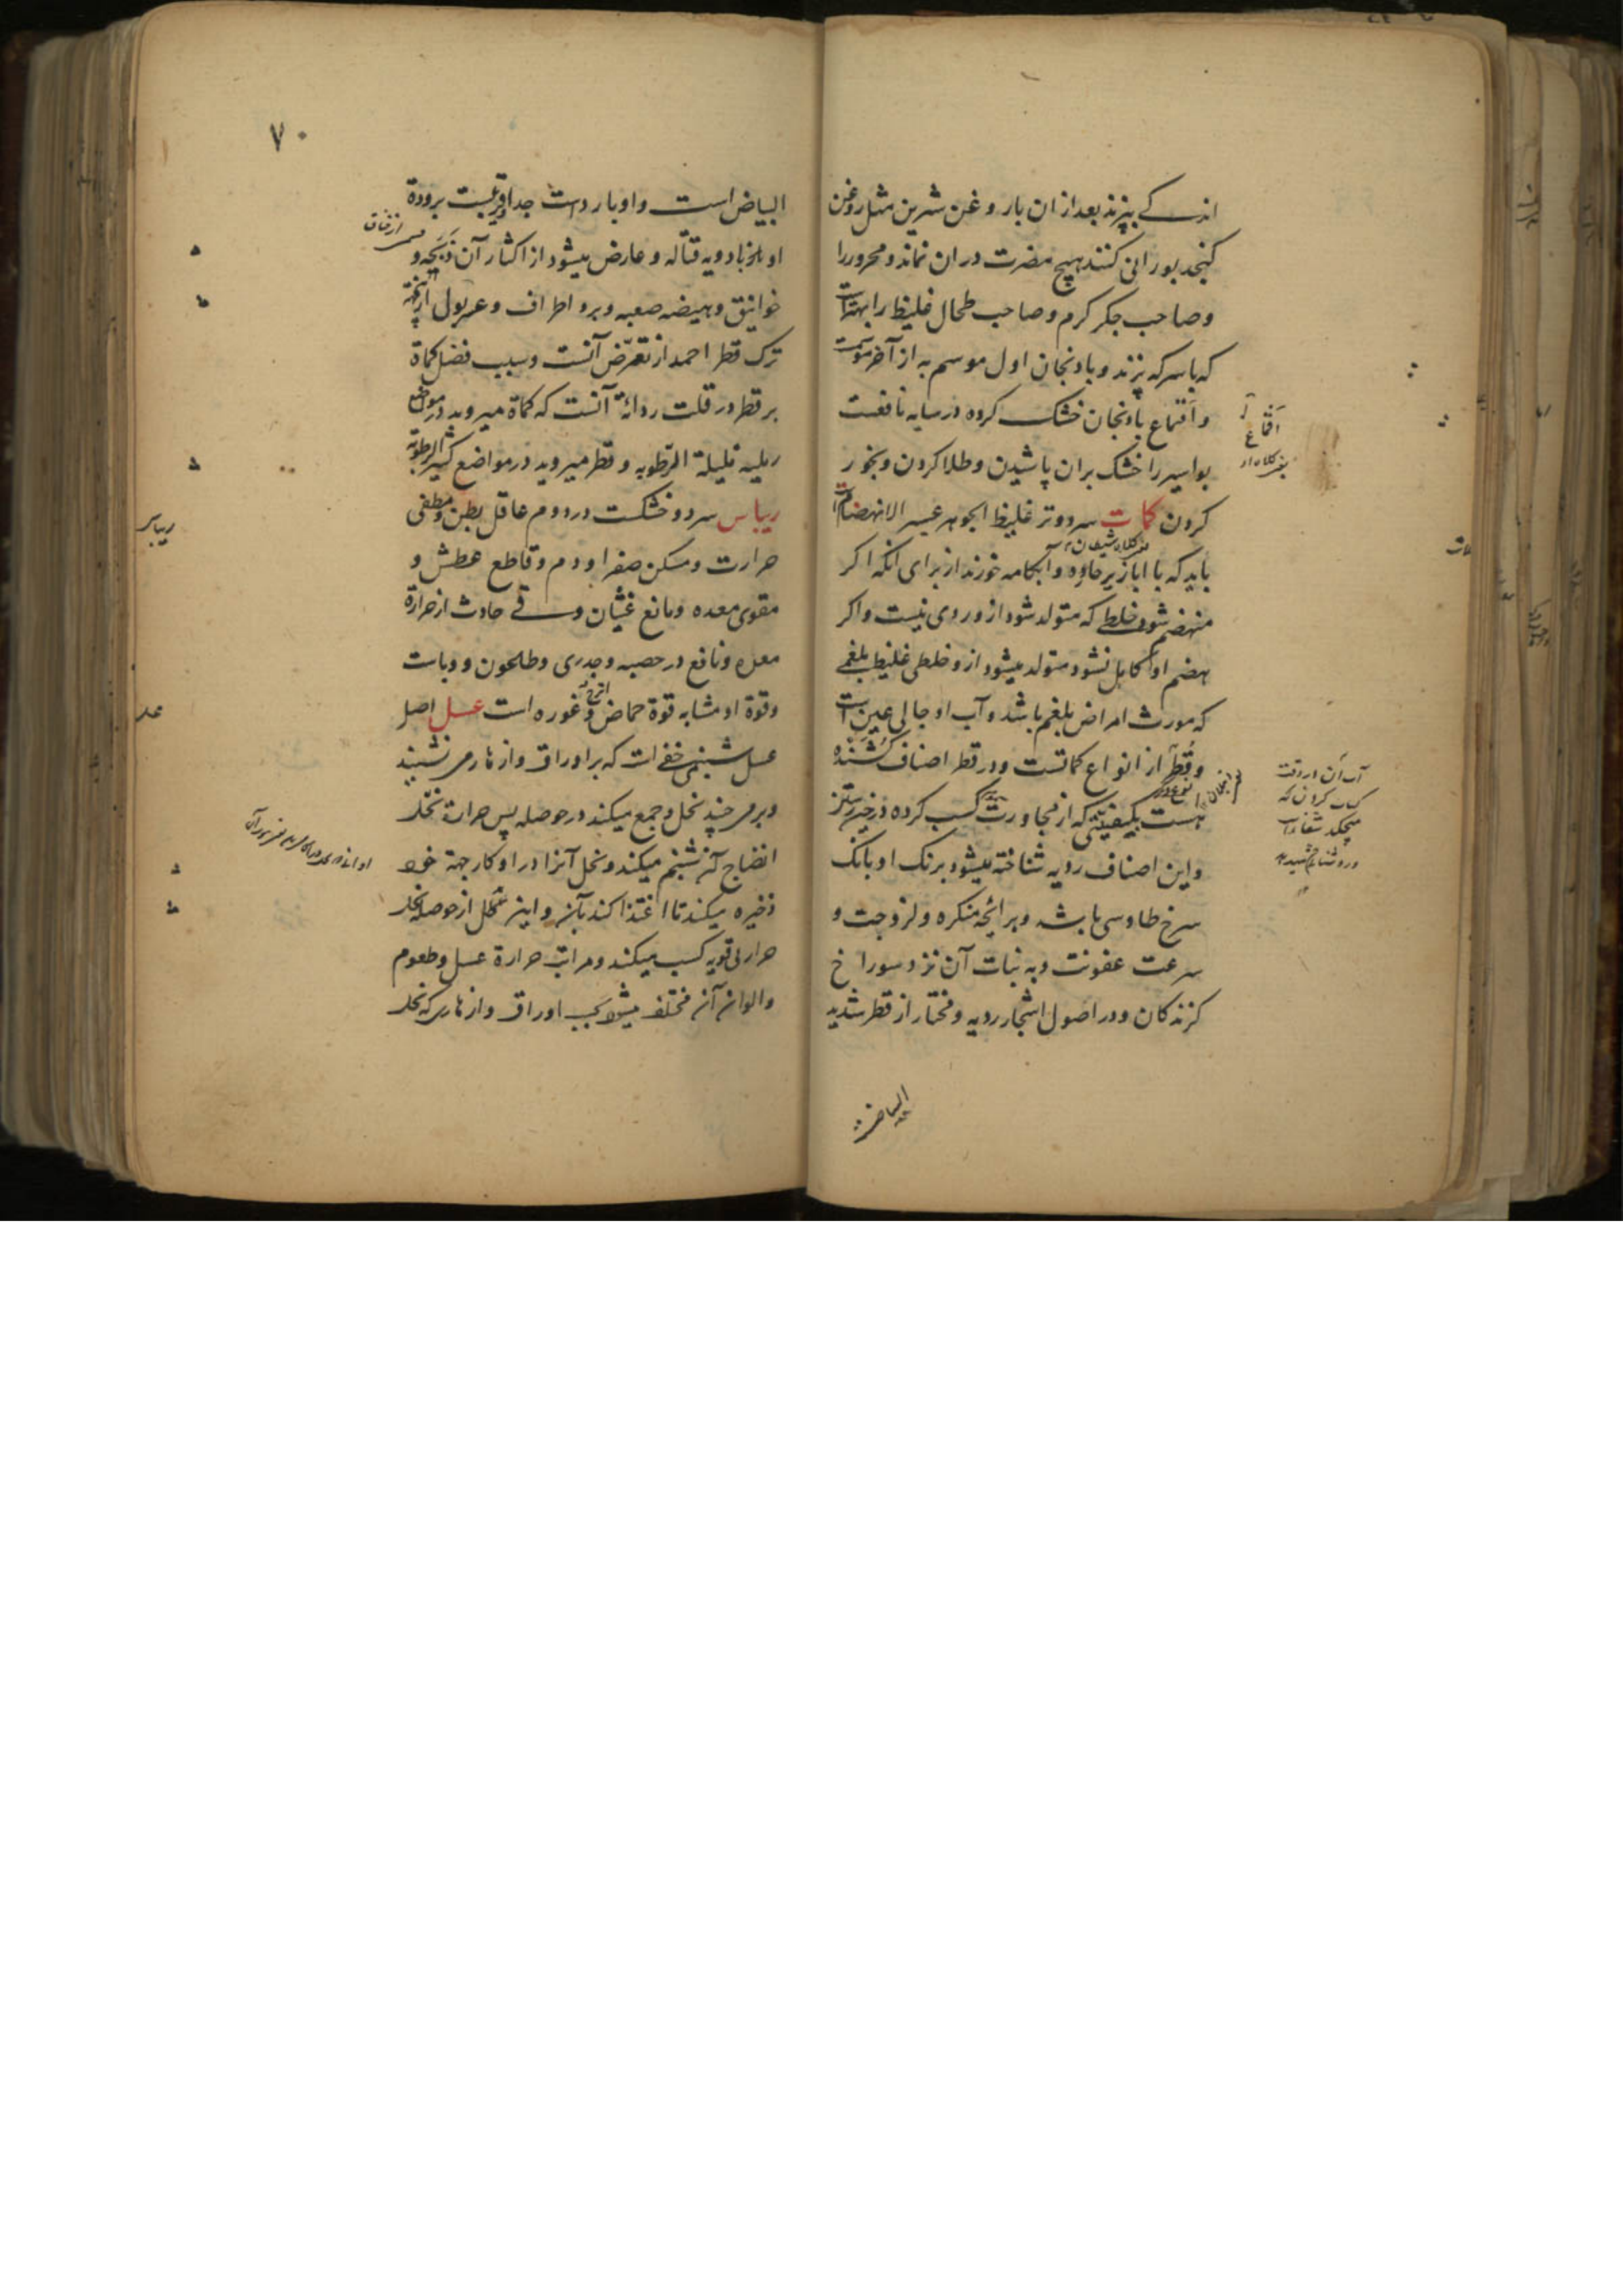 اندکے بپزند بعد از ان بار و غن شیرین مثل روغن
کنجد بورانی کنند هیچ مضرت در ان نماند و محرور را
و صاحب جکر کرم و صاحب طحال غلیظ را بهتر است
که با سرکه پزند و بادنجان اول موسم به از آخر موسمست
و اقماع بادنجان خشک کرده در سایه نافعست
بواسیر را خشک بران پاشیدن و طلا کردن و بخور
کردن کمات سرد و تر غلیظ الجوهر عسر الانهضام است
باید که با ابازیر حاره و آبکامه خورند از برای آنکه اکر
منهضم شود خلطی که متولد شود از و ردی نیست و اکر
هضم او کامل نشود متولد میشود از و خلطی غلیظ بلغمی
که مورث امراض بلغم باشد و آب او جالی عین است
و قطر از انواع کماتست و در قطر اصناف کشنده
هست بکیفیتی که از مجاورت کسب کرده
و این اصناف ردیه شناخته میشود برنک او بانک
سرخ طاوسی باشد و برائحه منکره و لزوجت و
سرعت عفونت و به نبات آن نزد سوراخ
کزندکان و در اصول اشجار ردیه و مختار از قطر شدید
البیاض
اقماع
آب آن
۷۰
البیاض است و او بارد است جدا و قریبست برودة
او بادویه قتاله و عارض میشود از اکثار آن ذبحه و
خوانیق و هیضه صعبه و برد اطراف و عسر بول
ترک قطر احمد از تعرض آنست و سبب فضل کماة
بر قطر در قلت ردائة آنست که کماة میروید در مواضع
رملیه قلیلة الرطوبه و قطر میروید در مواضع کثیر الرطوبة
ریباس سرد و خشکست در دوم عاقل بطن و مطفی
حرارت و مسکن صفرا و دم و قاطع عطش و
مقوی معده و مانع غثیان و قے حادث از حرارة
معده و نافع در حصبه و جدری و طاعون و وباست
و قوة او مشابه قوة حماض اترج و غوره است عسل اصل
عسل شبنمی خفی است که بر اوراق و ازهار می نشیند
و برمی چیند نحل و جمع میکند در حوصله پس حرارة نحل
انضاج آن شبنم میکند و نحل آنرا در اوکار جهة خود
ذخیره میکند تا اغتذا کند بآن و این عسل از حوصله نحل
حرارتی قویه کسب میکند و مراتب حرارة عسل و طعوم
و الوان آن مختلف میشود بحسب اوراق و ازهاری که نحل
ریباس
عسل